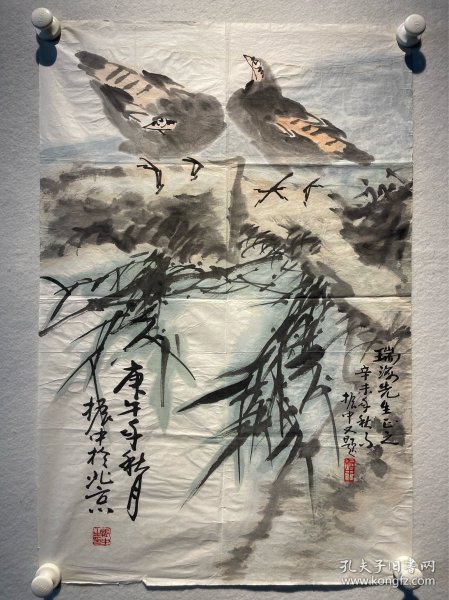 瑞海先生正之
辛未年秋月
振中又题
庚午年秋月
振中於北京
孔夫子旧书网
www.kongfz.com